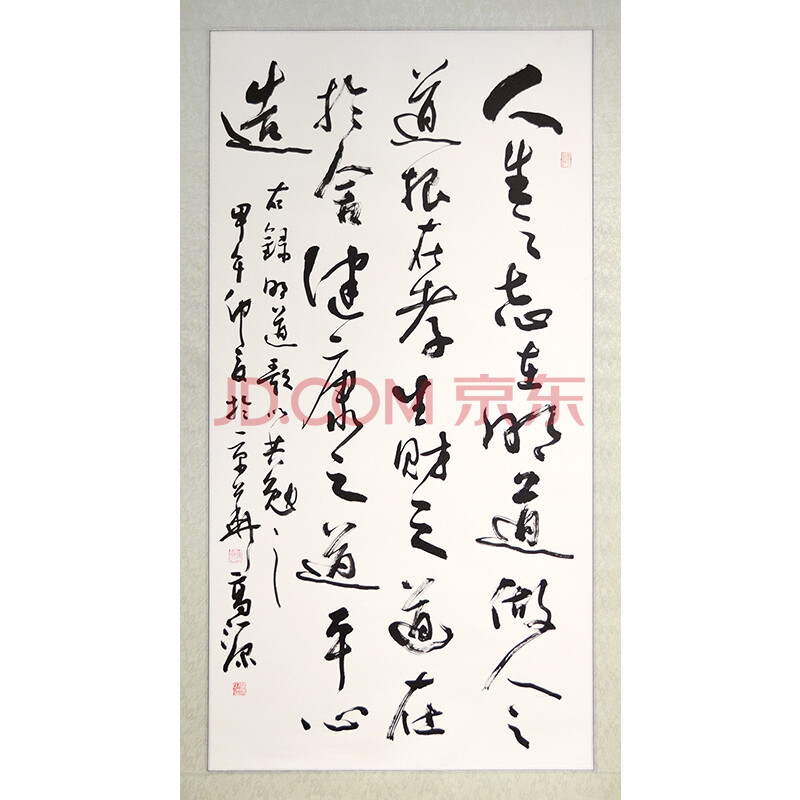 人生之志在明道做人之
道根在孝生财之道在
於舍健康之道平心
造
右錄明道歌以共勉之
甲午仲夏於京華高源
JD.COM 京东